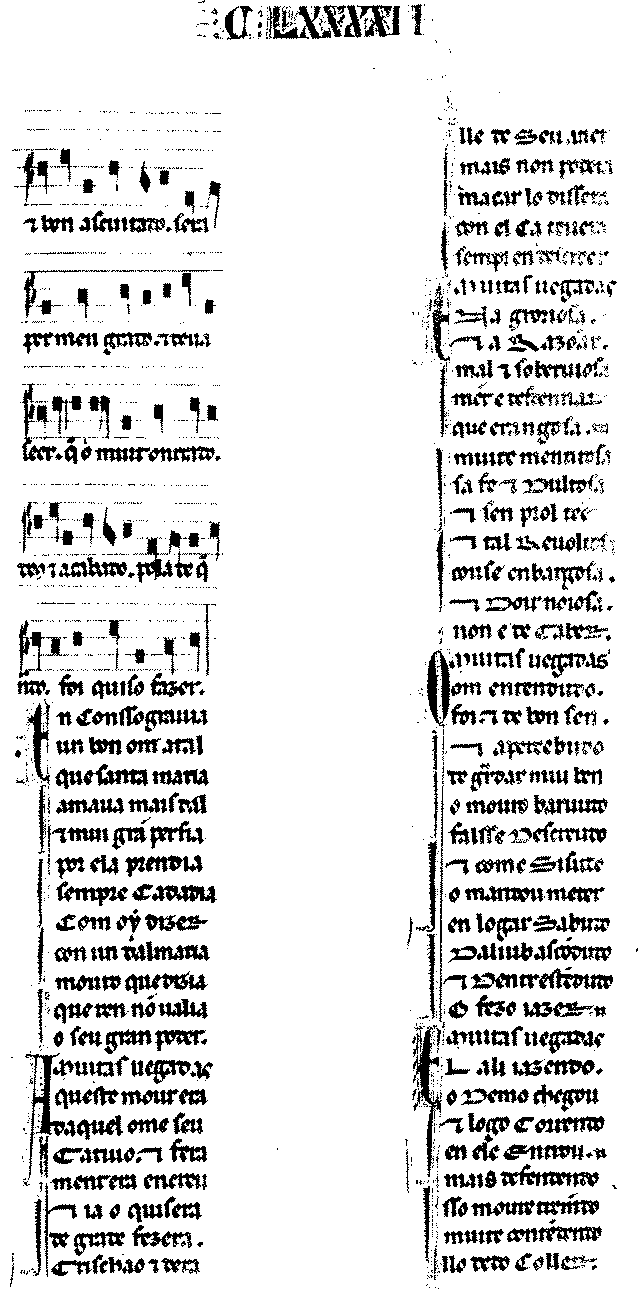 C LXXXXII
⁊ bon aſeuitado. ſera
per meu grado. ⁊ teua
ſeer. q̃ o muit onrrado.
⁊ acabado. pola de q̃
nado. foi quiſo fazer.
En Conſſogravia
un bon om atal
que ſanta maria
amaua mais dal
⁊ mui grã perfia
por ela prendia
ſempre Cada dia
Com oý dizer
con un dalmaria
mouro que dizia
que ren nõ ualia
o ſeu gran poder.
Muitas uegadas
Aqueſte mour era
daquel ome ſeu
Catiuo. ⁊ fera
ment era encreu
⁊ ia o quiſera
de grade fezera.
Criſchão ⁊ dera
lle de Seu auer
mais non podera
macar lo diſſera
con el Ca
ſempr en deſcreer
Muitas uegadas
Ela grorioſa.
⁊ a Razõar.
mal ⁊ ſoberuioſa
mẽt e deſdennar
que era ngoſa.
muit e mentiroſa
ſa fe ⁊ Dultoſa
⁊ ſen prol tẽer
⁊ tal Reuoltoſa
couſe enbargoſa.
⁊ Doir noioſa.
non e de Caber.
Muitas uegadas
Om entendudo.
foi. ⁊ de bon ſen.
⁊ apercebudo
de gũdar mui ben
o mouro baruudo
falſſe Deſcreudo
⁊ come Siſudo
o mandou meter
en logar Sabudo
Dali ub aſcõdudo
⁊ Dentr eſtẽdudo
O fezo iazer
Muitas uegadas
El ali iazendo.
o Demo chegou
⁊ logo Correndo
en ele Entrou.
mais defendendo
ſſo mour e tremẽdo
muit e contẽdendo
llo dedo Coller